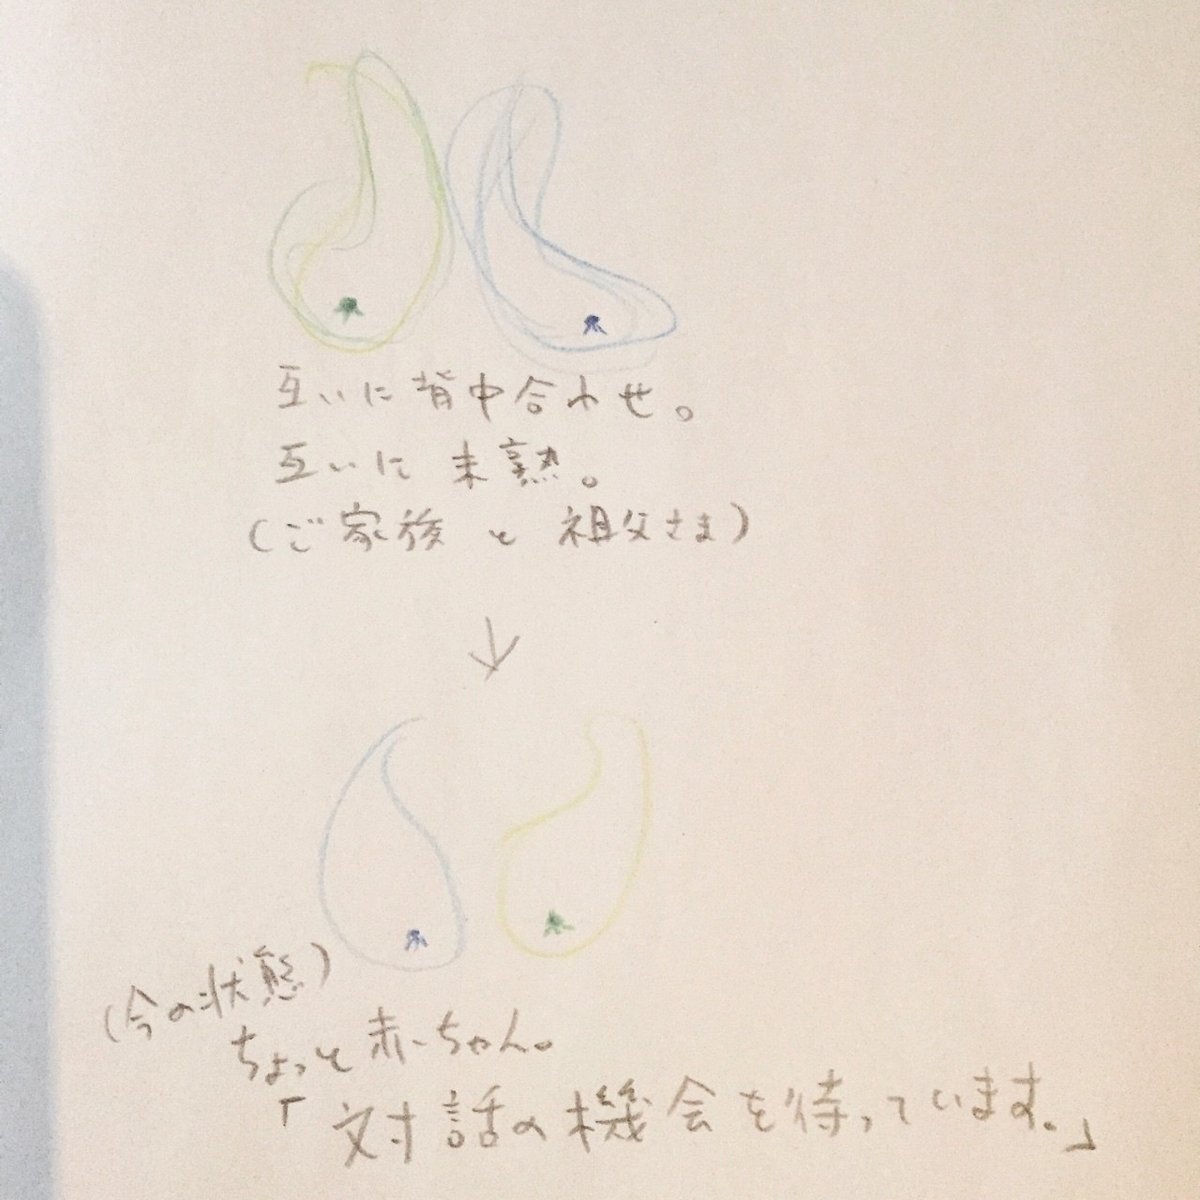 互いに背中合わせ。
互いに未熟。
(ご家族と祖父さま)
(今の状態)
ちょっと赤ちゃん。
「対話の機会を待っています。」